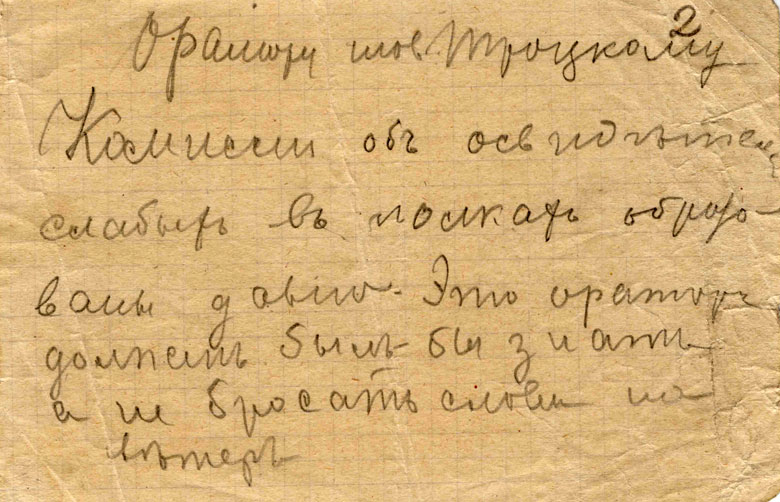 2
Оратору тов Троцкому
Комиссии объ освидѣтел
слабыхъ въ полкахъ образо-
ваны давно. Это ораторъ
долженъ былъ бы знать
а не бросать слова на
вѣтеръ